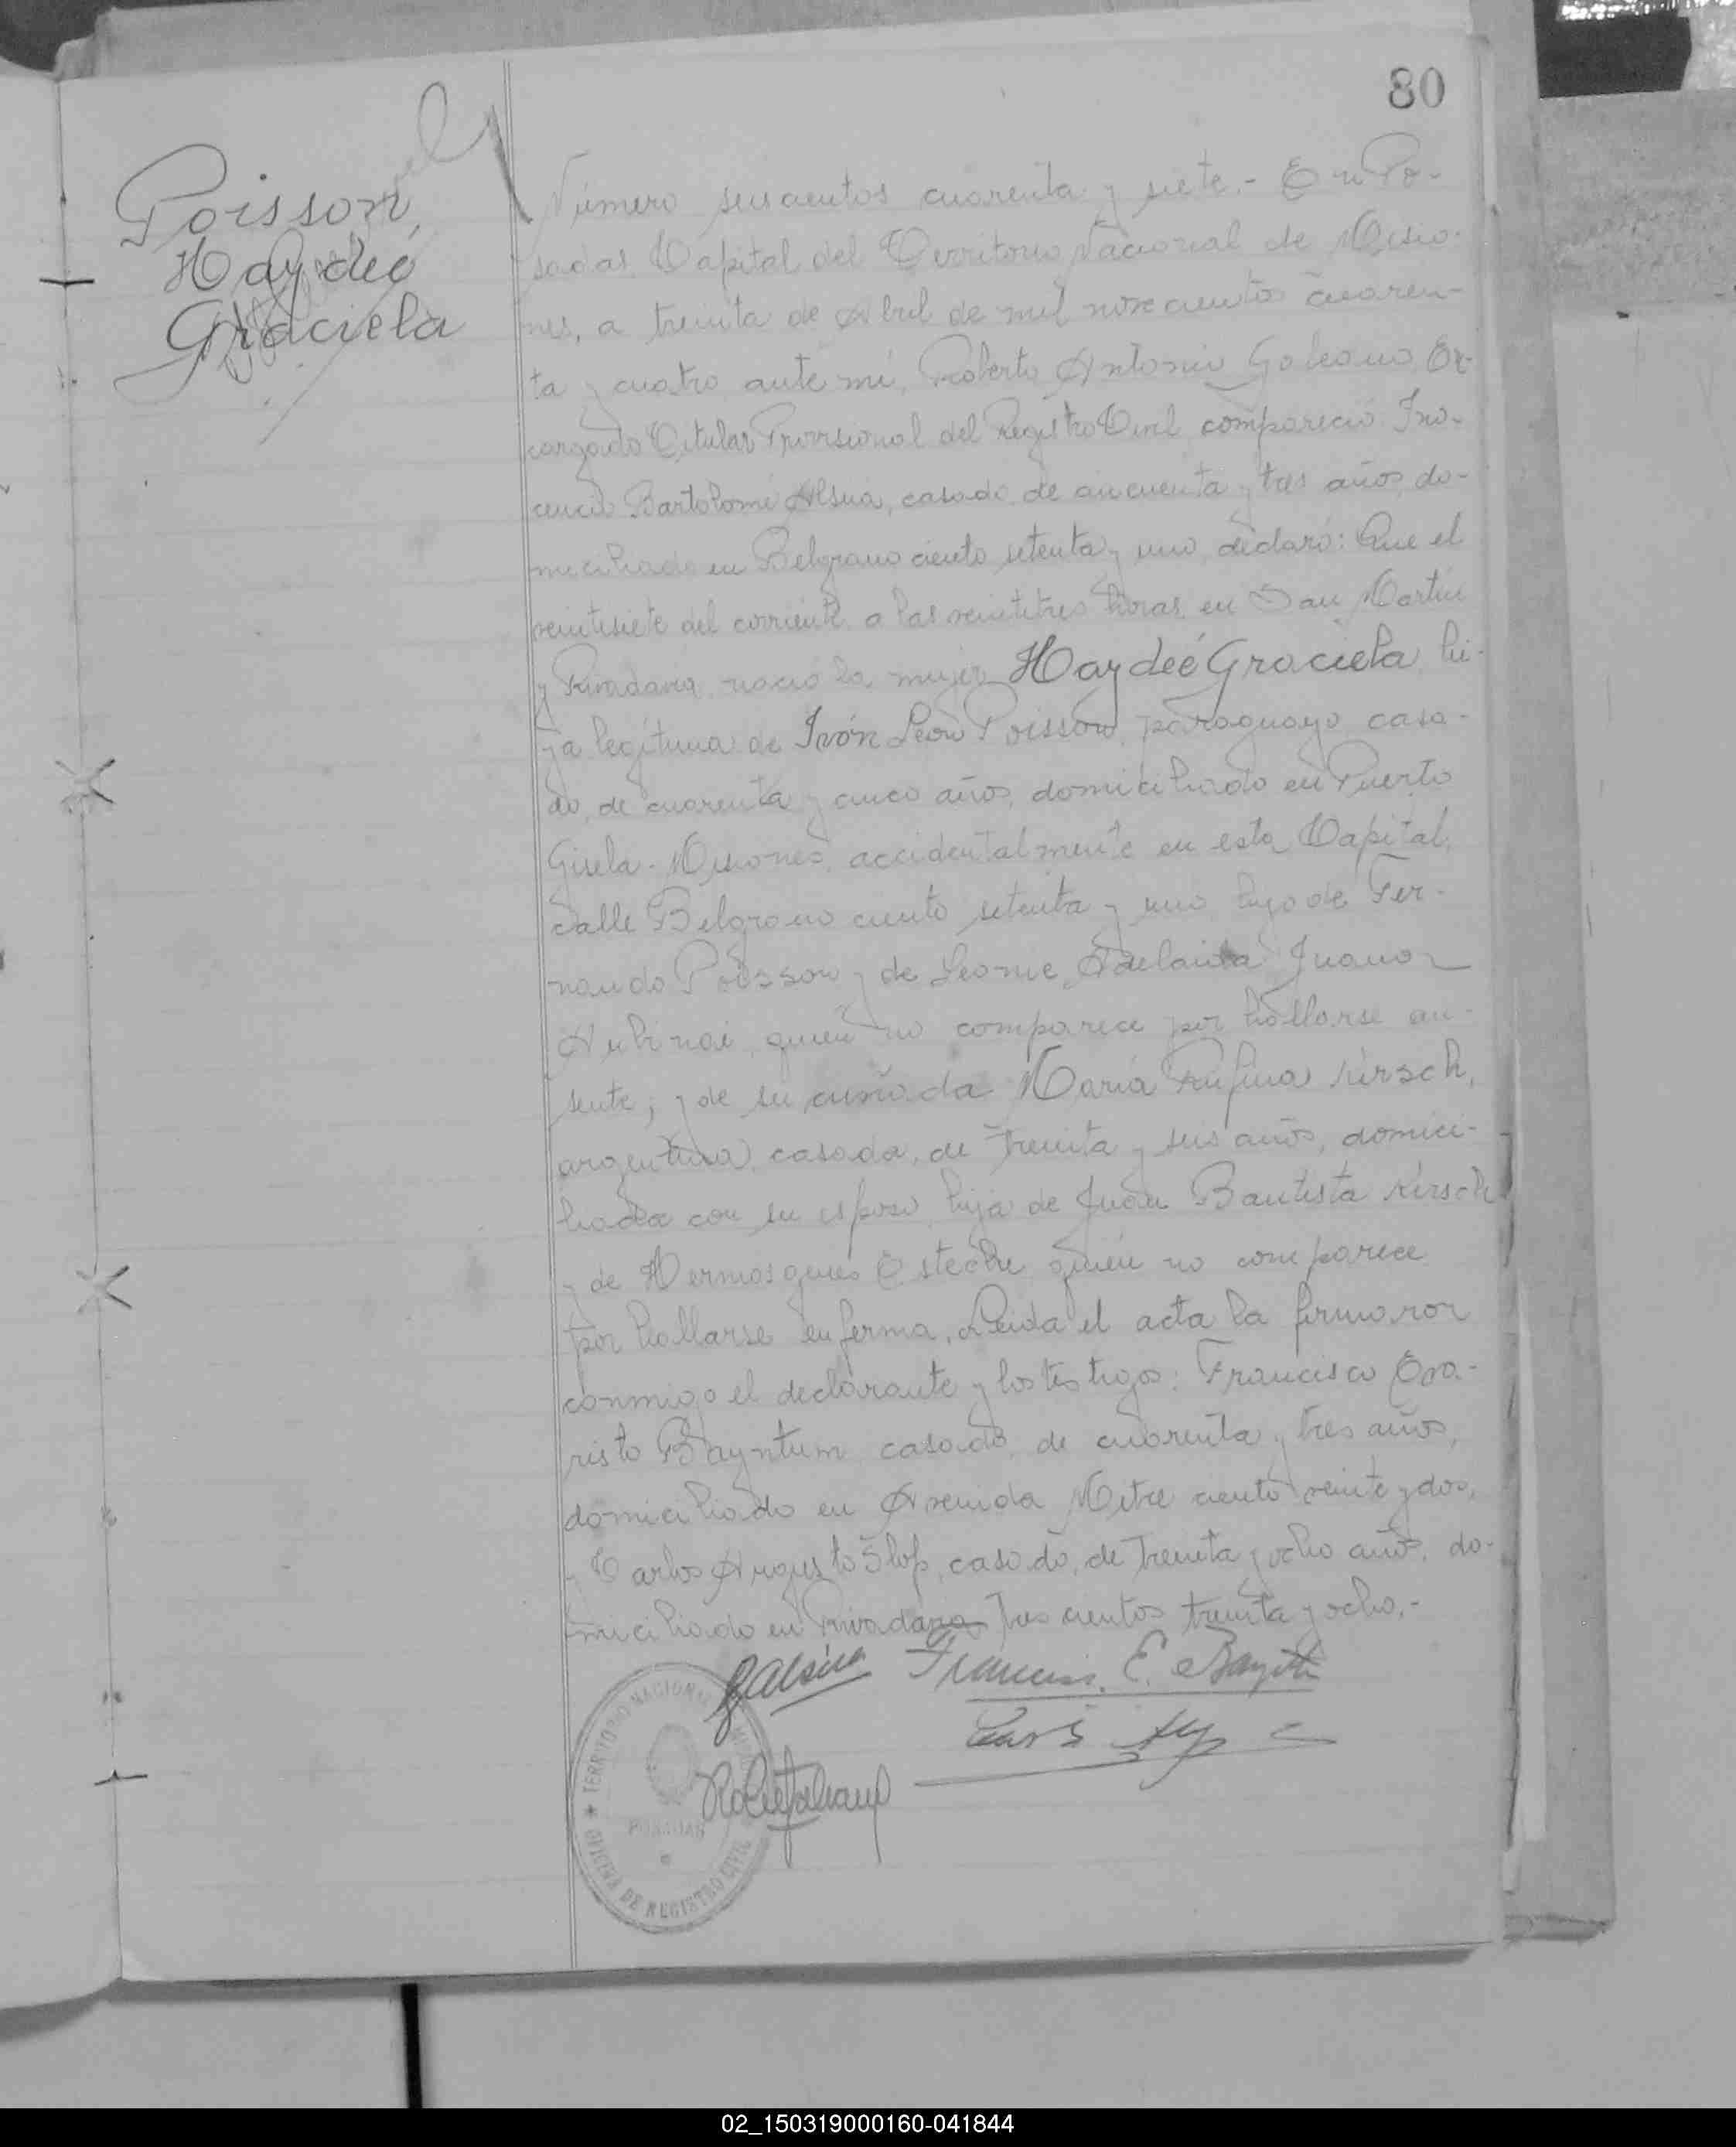 80
Poisson
Haydeé
Graciela
Número seiscientos cuarenta y siete.- En Po-
sadas Capital del Territorio Nacional de Misio-
nes, a treinta de Abril de mil novecientos cuaren-
ta y cuatro, ante mi, Roberto Antonio Galeano, En-
cargado Titular Provisional del Registro Civil compareció Ino-
cencio Bartolomé Alsina, casado, de cincuenta y tres años, do-
miciliado en Belgrano ciento setenta y uno, declaró: Que el
veintisiete del corriente a las veintitres horas, en San Martin
y Rivadavia nació la mujer Haydeé Graciela hi-
ja legítima de Ivón León Poisson, paraguayo casa-
do, de cuarenta y cinco años, domiciliado en Puerto
Gisela - Misiones, accidentalmente en esta Capital,
calle Belgrano ciento setenta y uno hijo de Fer-
nando Poisson y de Leonie Adelaida Juana
quien no comparece por hallarse au-
sente; y de su cuñada María Rufina Kirsch,
argentina, casada, de treinta y seis años, domici-
liada con su esposo, hija de Juan Bautista Kirsch
y de Hermosgenes Esteche quien no comparece
por hallarse enferma. Leida el acta la firmaron
conmigo el declarante y los testigos: Francisco Eva-
risto Bayntum casado, de cuarenta y tres años,
domiciliado en Avenida Mitre ciento veinte y dos,
y Carlos Augusto casado, de treinta y ocho años, do-
miciliado en Rivadavia Tres cientos treinta y ocho.-
BAlsina Francisco E. Bayntum
TERRITORIO NACIONAL
POSADAS
OFICINA DE REGISTRO CIVIL
02_150319000160-041844